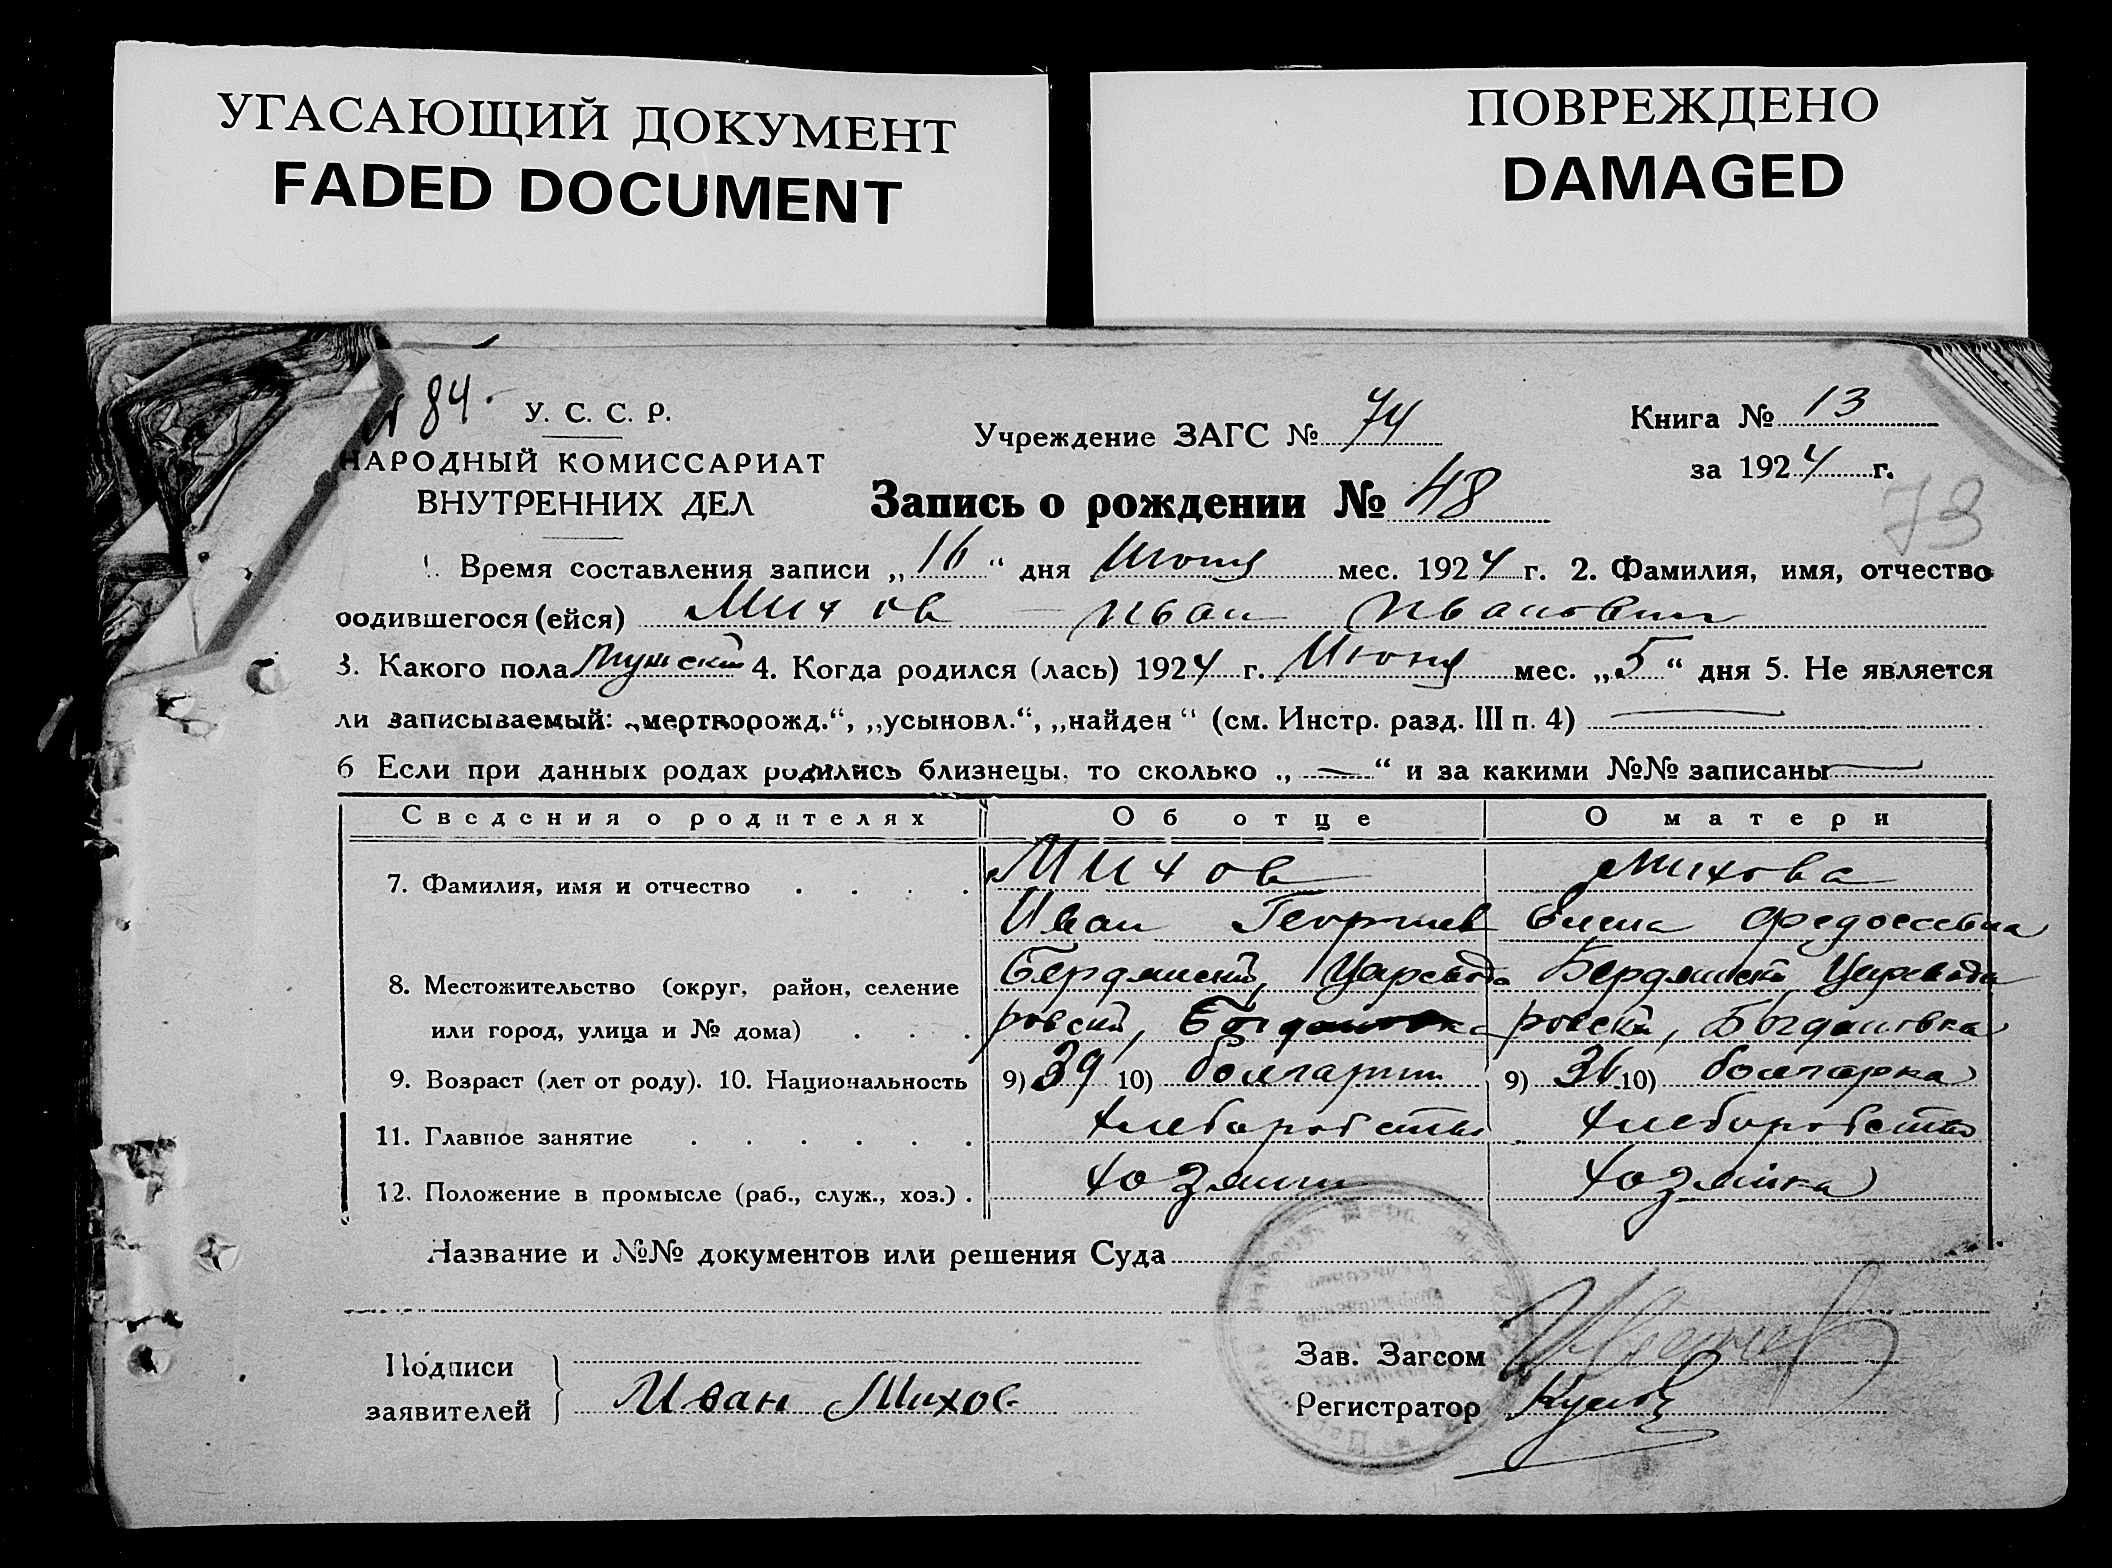 УГАСАЮЩИЙ ДОКУМЕНТ
FADED DOCUMENT
ПОВРЕЖДЕНО
DAMAGED
84.
У. С. С. Р.
НАРОДНЫЙ КОМИССАРИАТ
ВНУТРЕННИХ ДЕЛ
Учреждение ЗАГС № 74
Книга № 13
за 1924 г.
Запись о рождении № 48
73
1. Время составления записи „16“ дня Июня мес. 1924 г. 2. Фамилия, имя, отчество
родившегося (ейся) Михов Иван Иванович
3. Какого пола Мужской 4. Когда родился (лась) 1924 г. Июня мес. „5“ дня 5. Не является
ли записываемый: „мертворожд.“, „усыновл.“, „найден“ (см. Инстр. разд. III п. 4) —
6 Если при данных родах родились близнецы, то сколько „—“ и за какими №№ записаны —
Сведения о родителях Об отце О матери
7. Фамилия, имя и отчество Михов Михова
Иван Георгиев Елена Федосеевна
8. Местожительство (округ, район, селение Бердянский, Царевода Бердянский Царевода
или город, улица и № дома) ровский, Богдановка ровский, Богдановка
9. Возраст (лет от роду). 10. Национальность 9) 39 10) болгарин 9) 36 10) болгарка
11. Главное занятие хлеборобство хлеборобство
12. Положение в промысле (раб., служ., хоз.) хозяин хозяйка
Название и №№ документов или решения Суда
Подписи
заявителей Иван Михов
Зав. Загсом
Регистратор